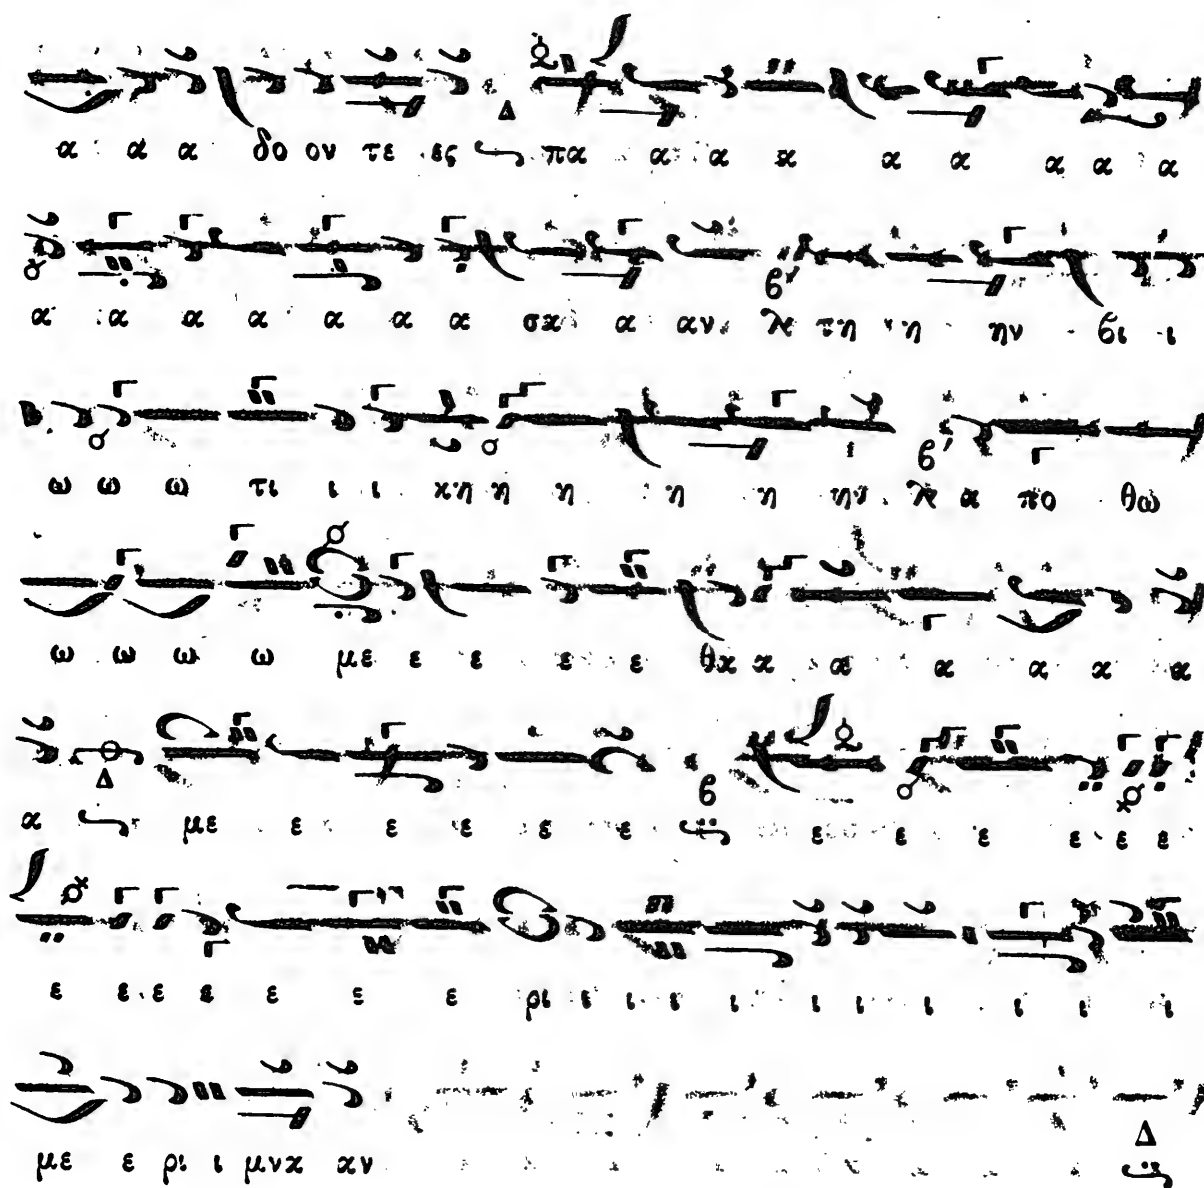 α α α δο ον τε ες πα α α α α α α α α
α α α α α α α σκ α αν τη η ην βι ι
ω ω ω τι ι ι κη η η η η ην α πο θω
ω ω ω ω με ε ε ε ε θα α α α α α α
α με ε ε ε ε ε ε ε ε ε ε ε
ε ε ε ε ε ε ε ρι ι ι ι ι ι ι ι ι ι ι
με ε ρι ι μνα αν